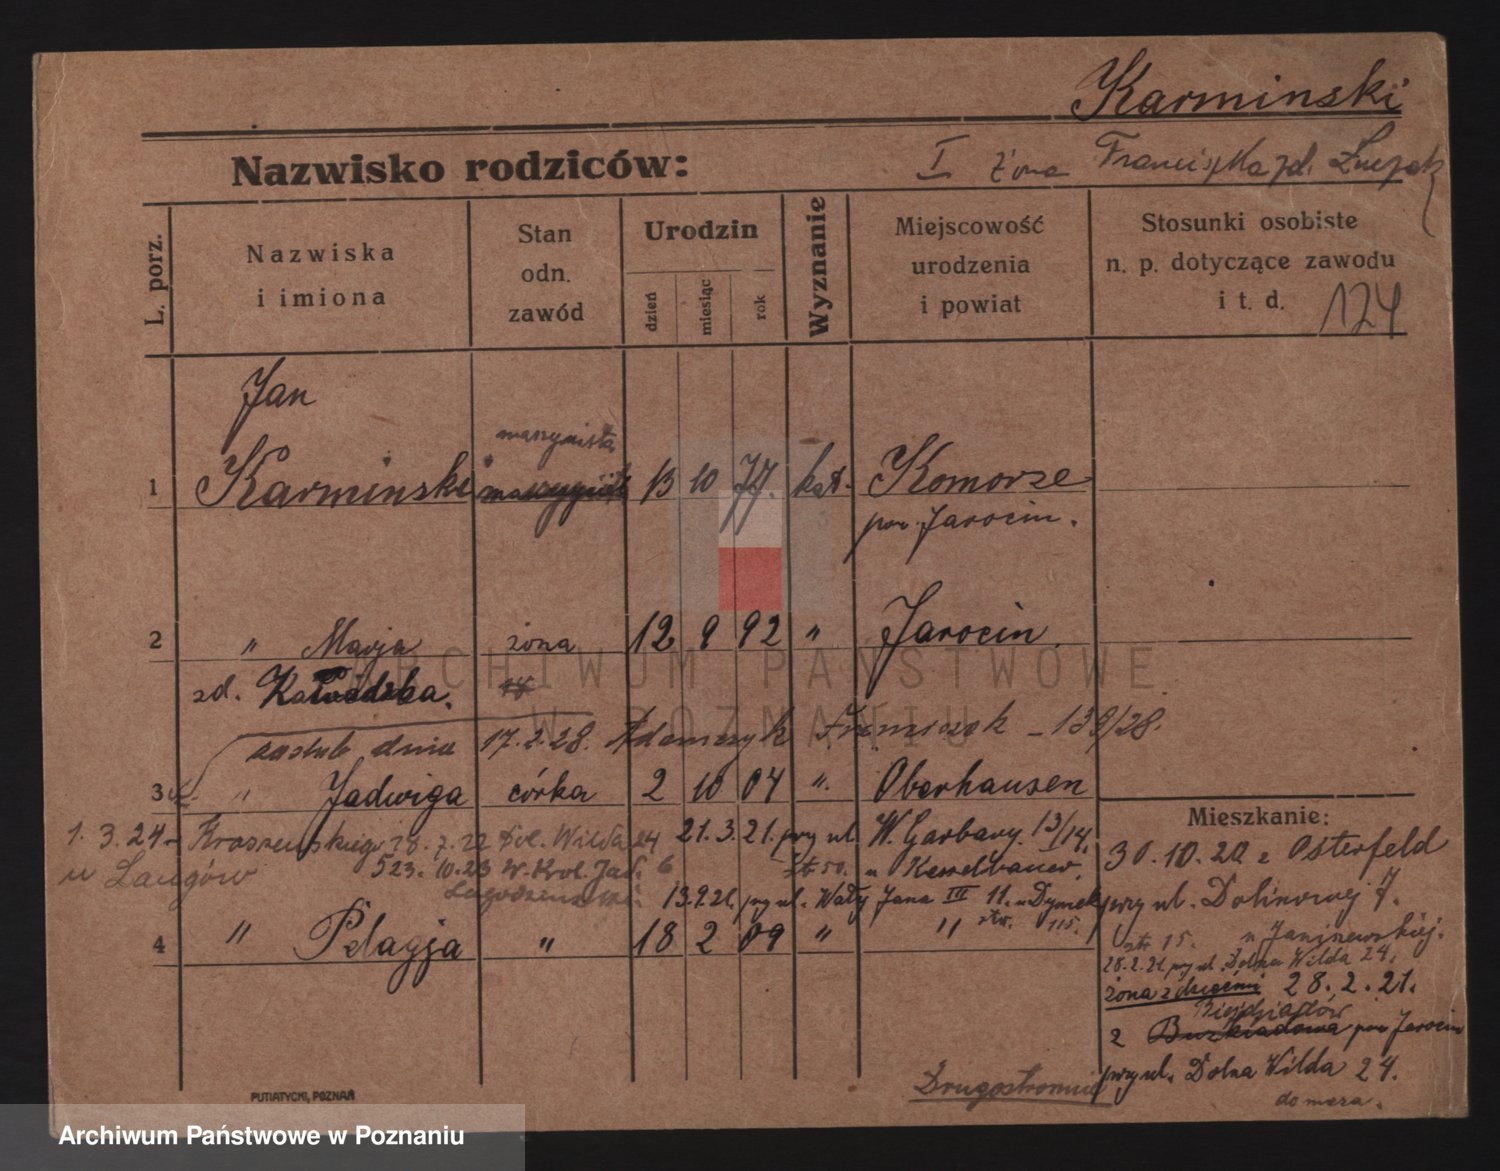 Karminski
Nazwisko rodziców:
I żona Franciszka zd.
L. porz.
Nazwiska
i imiona
Stan
odn.
zawód
Urodzin
dzień
miesiąc
rok
Wyznanie
Miejscowość
urodzenia
i powiat
Stosunki osobiste
n. p. dotyczące zawodu
i t. d.
124
Jan
maszynista
1 Karminski 13 10 77. kat. Komorze
pow. Jarocin.
2 " Marja żona 12 9 92 " Jarocin.
zd.
zaślub. dnia 17.2.28. Adamczyk Franciszek - 139/28.
3 " Jadwiga córka 2 10 04 " Oberhausen
Mieszkanie:
1.3.24 Kraszewskiego 7.22 Dol. Wilda 24 21.3.21. przy ul. W. Garbary 13/14.
30.10.20 z Osterfeld
23.10.23 W. Król. Jad. 6
13.9.21. przy ul. Wały Jana III 11. u Dymek
przy ul. Dolinowej 7.
4 " Pelagja " 18 2 09 " "
str. 15. u Janiszewskiej.
28.2.21. przy ul. Dolna Wilda 24.
żona z dziećmi 28.2.21.
z pow. Jarocin
przy ul. Dolna Wilda 24.
Drugostronnie
PUTIATYCKI, POZNAŃ
ARCHIWUM PAŃSTWOWE
W POZNANIU
Archiwum Państwowe w Poznaniu